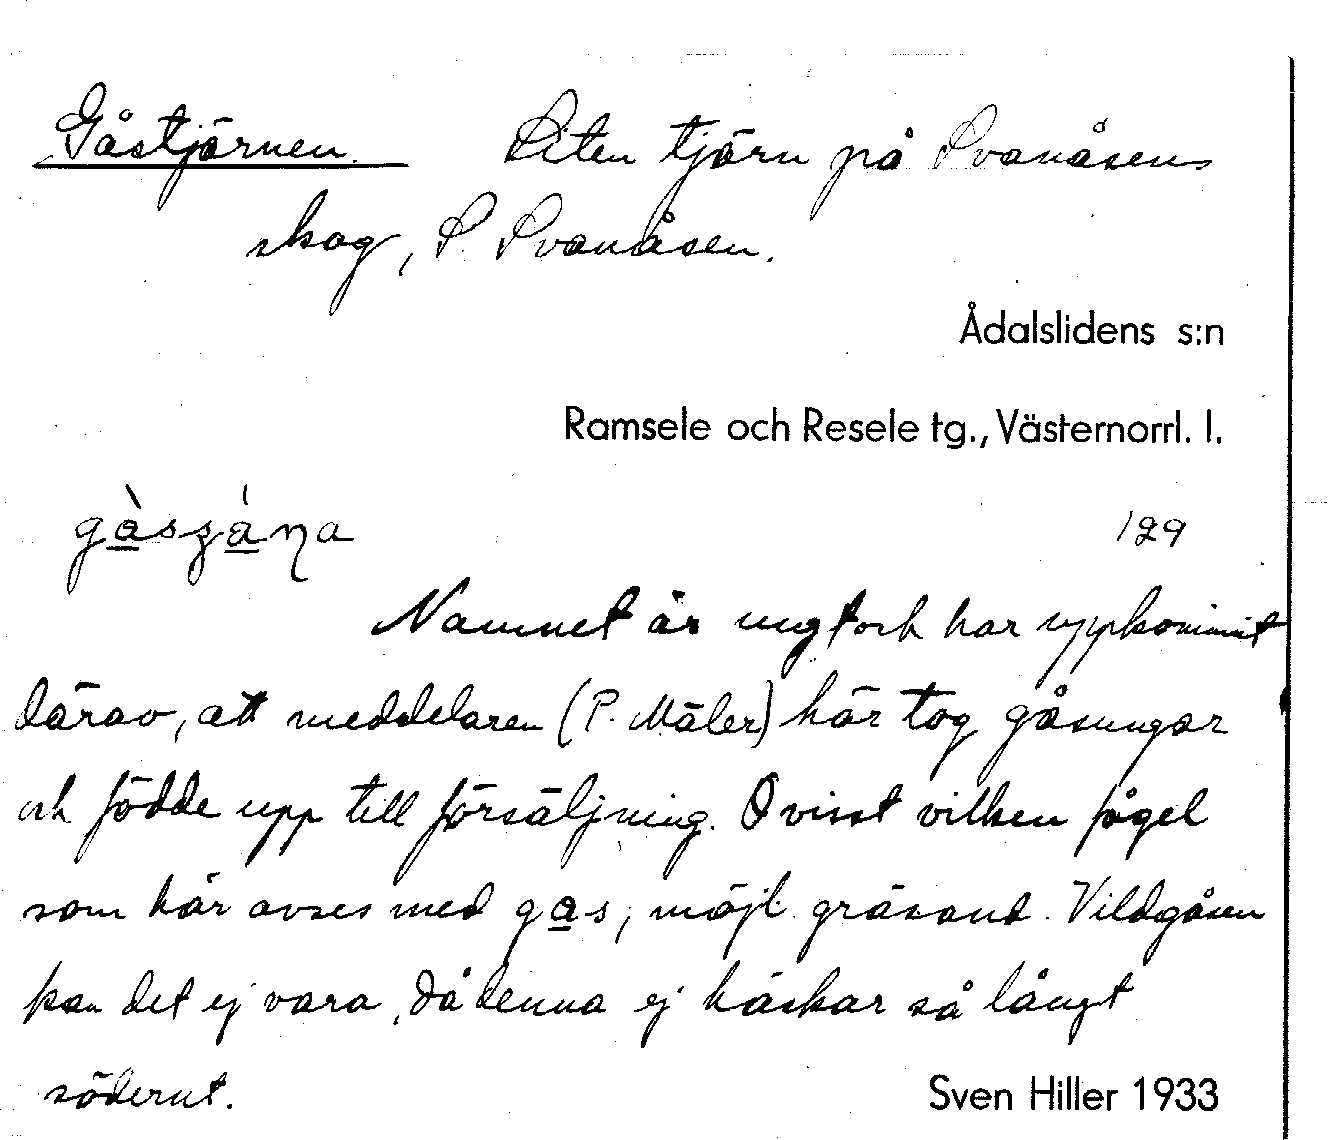 Gåstjärnen. Liten tjärn på Svanåsens
skog, S. Svanåsen.
Ådalslidens s:n
Ramsele och Resele tg., Västernorrl. l.
129
Namnet är ungt och har uppkommit
därav, att meddelaren (P. Mäler) här tog gåsungar
och födde upp till försäljning. Ovisst vilken fågel
som här avses med gas, möjl. gräsand. Vildgåsen
kan det ej vara, då denna ej häckar så långt
söderut.
Sven Hiller 1933